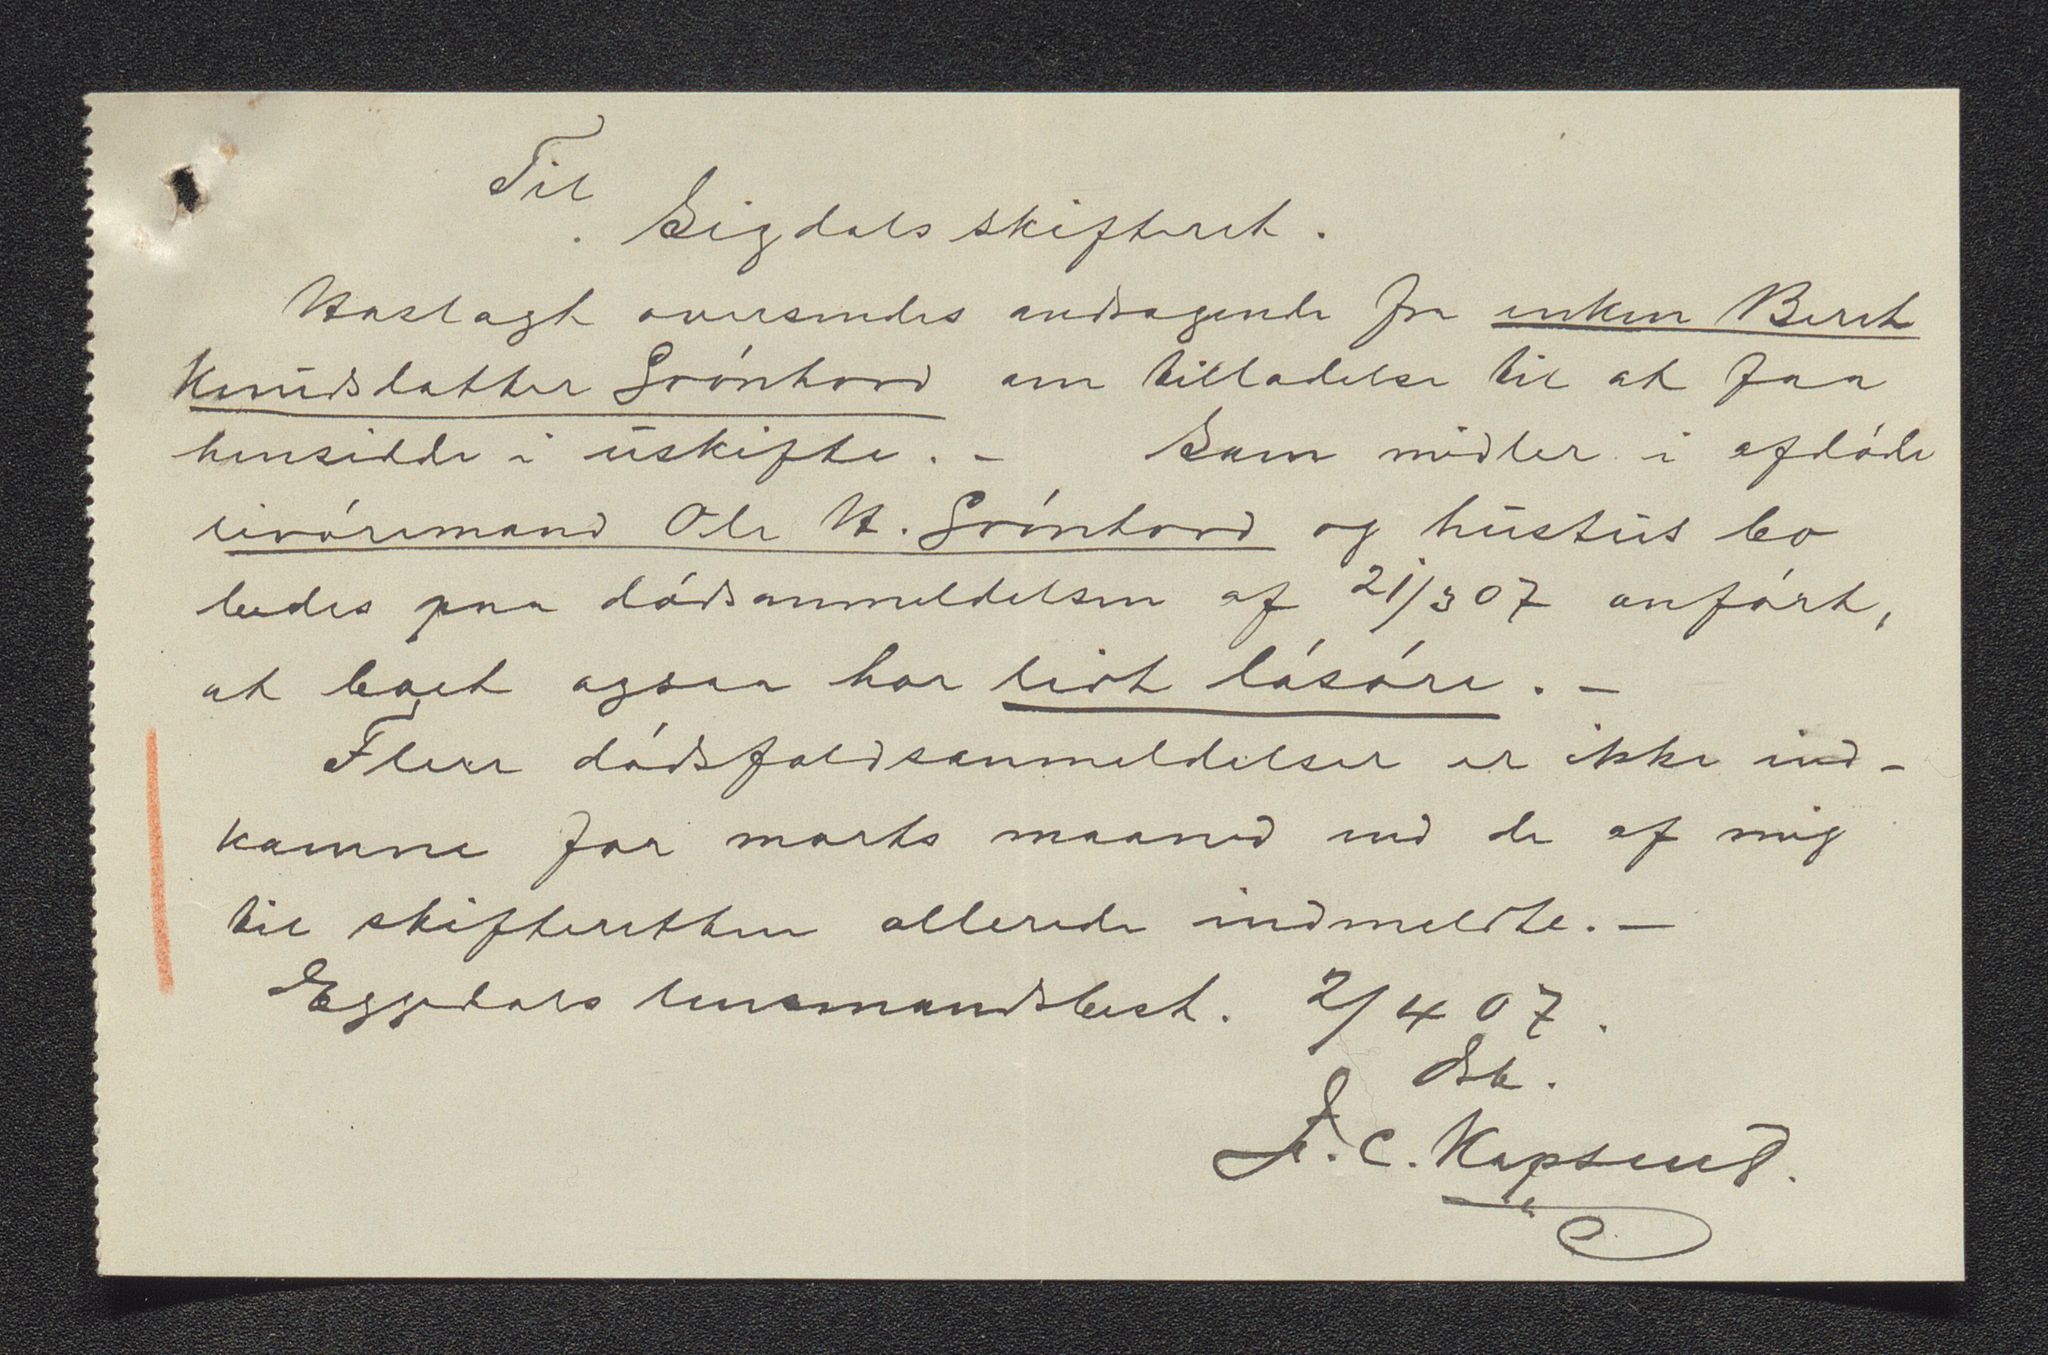 Til
Sigdals skifteret.
Vedlagt oversendes andragende fra enken Beret
Knudsdatter Grønhovd om tilladelse til at faa
hensidde i uskifte. - Som midler i afdøde
livøremand Ole K. Grønhovd og hustrus bo
bedes paa dødsanmeldelsen af 21/3 07 anført,
at boet ogsaa har lidt løsøre. -
Flere dødsfaldsanmeldelser er ikke ind-
komne for marts maaned end de af mig
til skifteretten allerede indmeldte. -
Eggedals lensmandsbest. 2/4 07.
Ørb.
F. C. Kopseng.